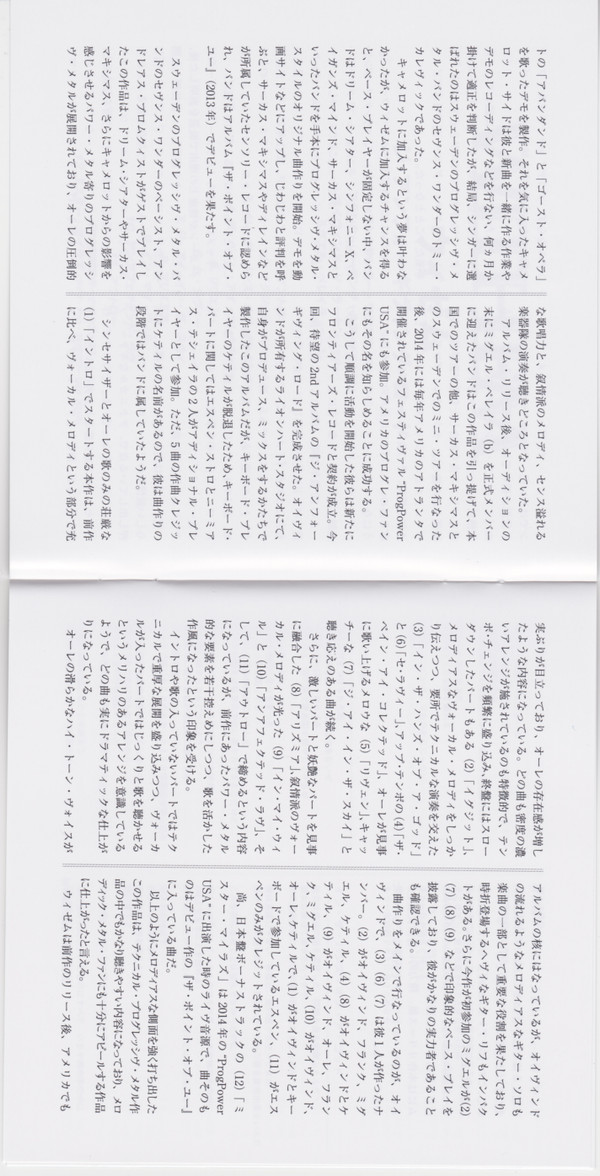 トの「アバンダンド」と「ゴースト・オペラ」
を歌ったデモを製作。それを気に入ったキャメ
ロット・サイドは彼と新曲を一緒に作る作業や
デモのレコーディングなどを行ない、何ヵ月か
掛けて適正を判断したが、結局、シンガーに選
ばれたのはスウェーデンのプログレッシヴ・メ
タル・バンドのセヴンス・ワンダーのトミー・
カレヴィックであった。
キャメロットに加入するという夢は叶わな
かったが、ウィゼムに加入するチャンスを得る
と、ベース・プレイヤーが固定しない中、バン
ドはドリーム・シアター、シンフォニー X、ペ
イガンズ・マインド、サーカス・マキシマスと
いったバンドを手本にプログレッシヴ・メタル・
スタイルのオリジナル曲作りを開始。デモを動
画サイトなどにアップし、じわじわと評判を呼
ぶと、サーカス・マキシマスやディレインなど
が所属していたセンソリー・レコードに認めら
れ、バンドはアルバム『ザ・ポイント・オブ・
ユー』(2013年)でデビューを果たす。
スウェーデンのプログレッシヴ・メタル・バ
ンドのセヴンス・ワンダーのベーシスト、アン
ドレアス・ブロムクィストがゲストでプレイし
たこの作品は、ドリーム・シアターやサーカス・
マキシマス、さらにキャメロットからの影響を
感じさせるパワー・メタル寄りのプログレッシ
ヴ・メタルが展開されており、オーレの圧倒的
な歌唱力と、叙情派のメロディ、センス溢れる
楽器隊の演奏が聴きどころとなっていた。
アルバム・リリース後、オーディションの
末にミグエル・ペレイラ (b) を正式メンバー
に迎えたバンドはこの作品を引っ提げて、本
国でのツアーの他、サーカス・マキシマスと
のスウェーデンでのミニ・ツアーを行なった
後、2014年には毎年アメリカのアトランタで
開催されているフェスティヴァル "ProgPower
USA" にも参加。アメリカのプログレ・ファン
にもその名を知らしめることに成功する。
こうして順調に活動を開始した彼らは新たに
フロンティアーズ・レコードと契約が成立。今
回、待望の2ndアルバムの『ジ・アンフォー
ギヴィング・ロード』を完成させた。オイヴィ
ンドが所有するライオンハート・スタジオにて、
自身がプロデュース、ミックスをするかたちで
製作したこのアルバムだが、キーボード・プレ
イヤーのケティルが脱退したため、キーボード・
パートに関してはエスペン・ストロとニーミア
ス・テシェイラの2人がアディショナル・プレ
イヤーとして参加。ただ、5曲の作曲クレジッ
トにケティルの名前があるので、彼は曲作りの
段階ではバンドに属していたようだ。
シンセサイザーとオーレの歌のみの荘厳な
(1)「イントロ」でスタートする本作は、前作
に比べ、ヴォーカル・メロディという部分で充
実ぶりが目立っており、オーレの存在感が増し
たような内容になっている。どの曲も密度の濃
いアレンジが施されているのも特徴的で、テン
ポ・チェンジを頻繁に盛り込み、終盤にはスロー
ダウンしたパートもある (2)「イグジット」、
メロディアスなヴォーカル・メロディをしっか
り伝えつつ、要所でテクニカルな演奏を交えた
(3)「イン・ザ・ハンズ・オブ・ア・ゴッド」
と (6)「セ・ラヴィー」、アップ・テンポの (4)「ザ・
ペイン・アイ・コレクテッド」、オーレが見事
に歌い上げるメロウな (5)「リヴェン」、キャッ
チーな (7)「ジ・アイ・イン・ザ・スカイ」と
聴き応えのある曲が続く。
さらに、激しいパートと妖艶なパートを見事
に融合した (8)「アリズミア」、叙情派のヴォー
カル・メロディが光った (9)「イン・マイ・ヴィ
ル」と (10)「アンアフェクテッド・ラヴ」、そ
して、(11)「アウトロー」で締めるという内容
になっているが、前作にあったパワー・メタル
的な要素を若干控えめにしつつ、歌を活かした
作風になったという印象を受ける。
イントロや歌の入っていないパートではテク
ニカルで重厚な展開を盛り込みつつ、ヴォーカ
ルが入ったパートではじっくりと歌を聴かせる
というメリハリのあるアレンジを意識している
ようで、どの曲も実にドラマティックな仕上が
りになっている。
オーレの滑らかなハイ・トーン・ヴォイスが
アルバムの核にはなっているが、オイヴィンド
の流れるようなメロディアスなギター・ソロも
楽曲の一部として重要な役割を果たしており、
時折登場するヘヴィなギター・リフもインパク
トがある。さらに今作が初参加のミグエルが (2)
(7) (8) (9) などで印象的なベース・プレイを
披露しており、彼がかなりの実力者であること
も確認できる。
曲作りをメインで行なっているのが、オイ
ヴィンドで、(3) (6) (7) は彼1人が作ったナ
ンバー。(2) がオイヴィンド、フランク、ミグ
エル、ケティル、(4) (8) がオイヴィンドとケ
ティル、(9) がオイヴィンド、オーレ、フラン
ク、ミグエル、ケティル、(10) がオイヴィンド、
オーレ、ケティルで、(1) がオイヴィンドとキー
ボードで参加しているエスペン、(11) がエス
ペンのみがクレジットされている。
尚、日本盤ボーナストラックの (12)「ミ
スター・マイラズ」は2014年の "ProgPower
USA" に出演した時のライヴ音源で、曲そのも
のはデビュー作の『ザ・ポイント・オブ・ユー』
に入っている曲だ。
以上のようにメロディアスな側面を強く打ち出した
この作品は、テクニカル・プログレッシヴ・メタル作
品の中でもかなり聴きやすい内容になっており、メロ
ディック・メタル・ファンにも十分にアピールする作品
に仕上がったと言える。
ウィゼムは前作のリリース後、アメリカでも